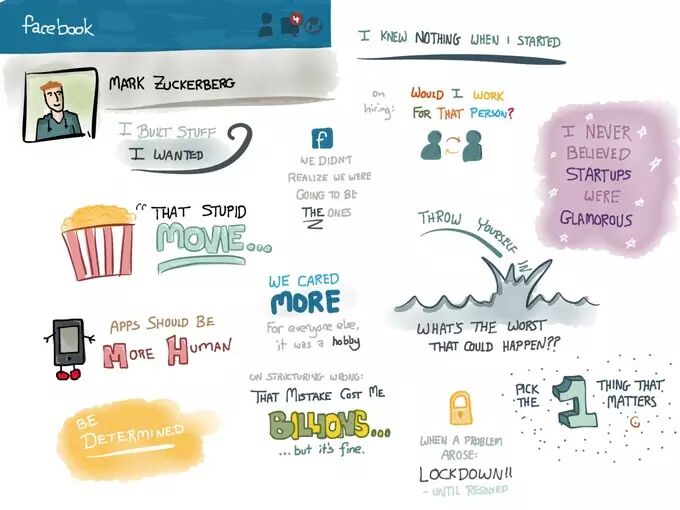 facebook
4
MARK ZUCKERBERG
I BUILT STUFF
I WANTED
f
WE DIDN'T
REALIZE WE WERE
GOING TO BE
THE ONES
"THAT STUPID
MOVIE...
WE CARED
MORE
For everyone else,
it was a hobby
APPS SHOULD BE
MORE HUMAN
ON STRUCTURING WRONG:
THAT MISTAKE COST ME
BILLIONS...
... but it's fine.
BE
DETERMINED
I KNEW NOTHING WHEN I STARTED
on
hiring:
WOULD I WORK
FOR THAT PERSON?
I NEVER
BELIEVED
STARTUPS
WERE
GLAMOROUS
THROW YOURSELF IN
WHAT'S THE WORST
THAT COULD HAPPEN??
PICK
THE
1
THING THAT
MATTERS
WHEN A PROBLEM
AROSE:
LOCKDOWN!!
- UNTIL RESOLVED